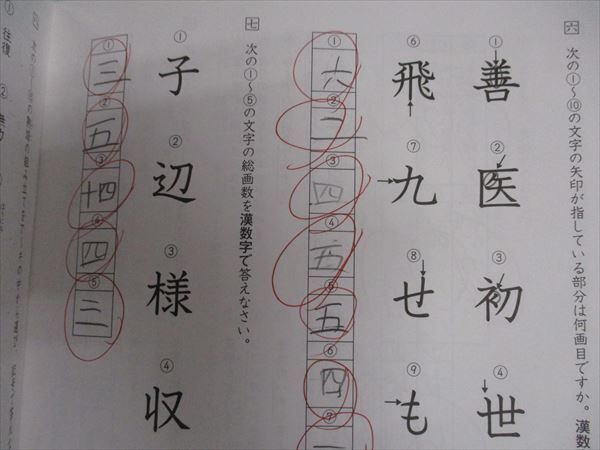 六 次の①〜⑩の文字の矢印が指している部分は何画目ですか。漢数
① 善 ② 医 ③ 初 ④ 世
⑥ 飛 ⑦ 九 ⑧ せ ⑨ も
① 六
② 二
③ 四
④ 五
⑤ 五
⑥ 四
⑦
七 次の①〜⑤の文字の総画数を漢数字で答えなさい。
① 子 ② 辺 ③ 様 ④ 収
① 三
② 五
③ 十四
④ 四
⑤ 三
① 往復 ②